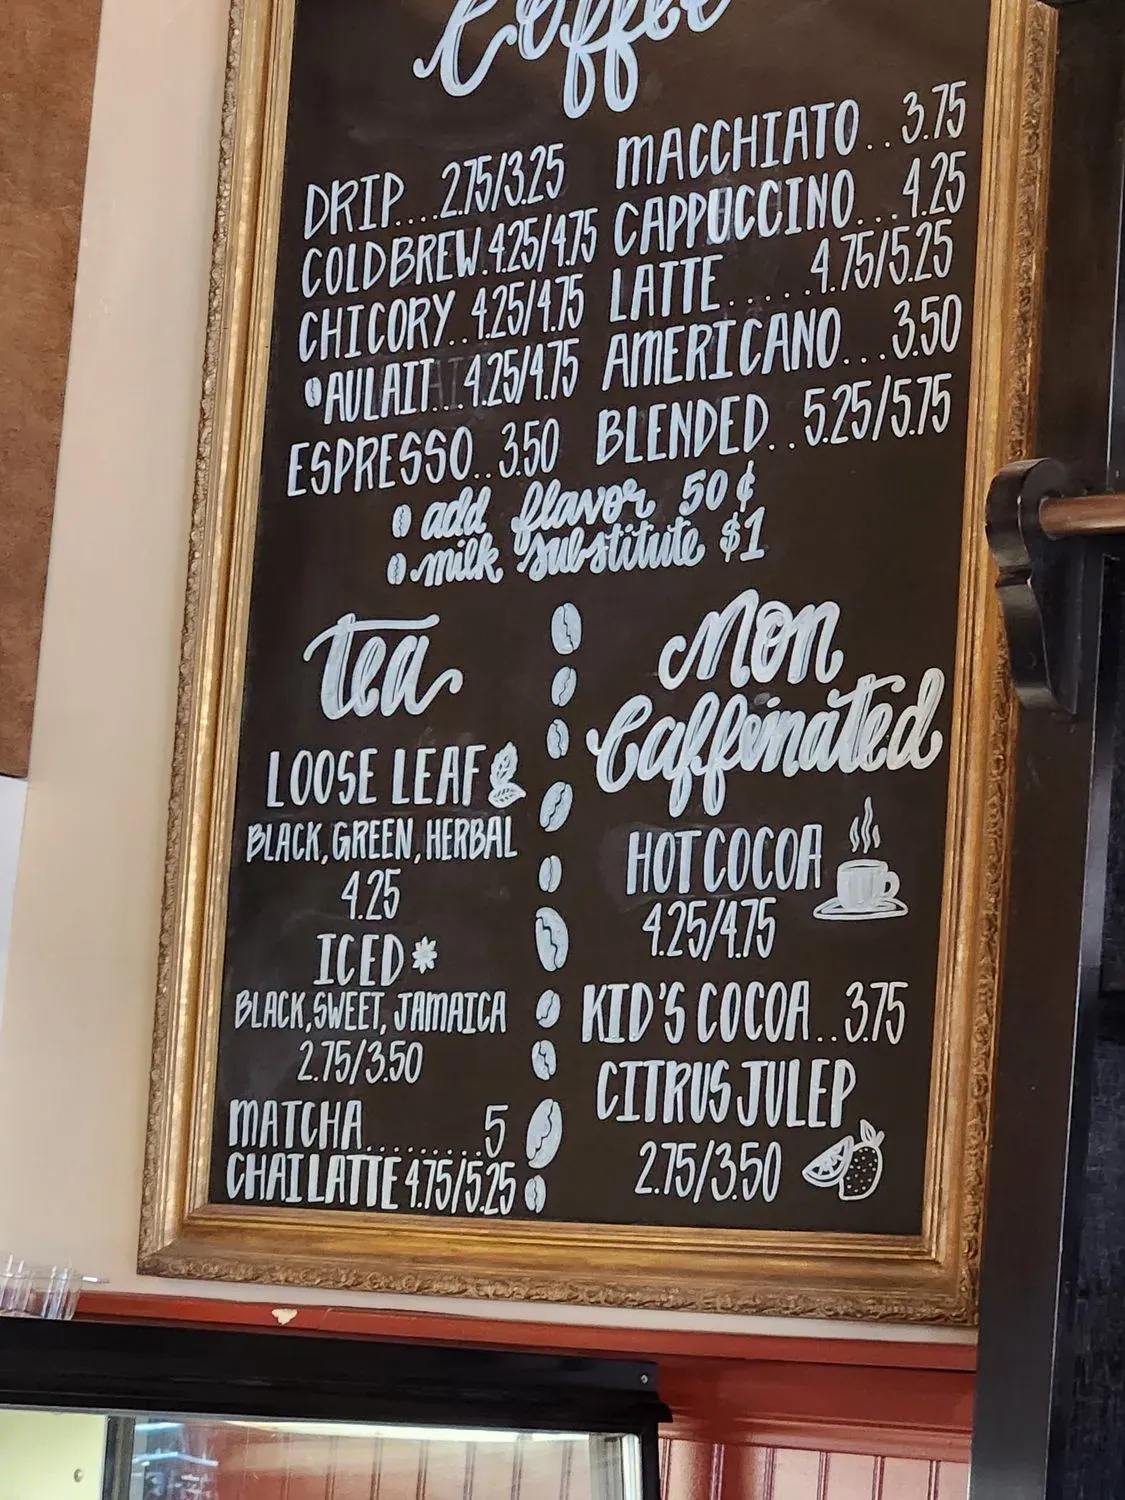 Coffee
DRIP....2.75/3.25
COLD BREW.4.25/4.75
CHICORY..4.25/4.75
AULAIT...4.25/4.75
ESPRESSO..3.50
MACCHIATO..3.75
CAPPUCCINO...4.25
LATTE......4.75/5.25
AMERICANO...3.50
BLENDED..5.25/5.75
add flavor 50¢
milk substitute $1
tea
LOOSE LEAF
BLACK, GREEN, HERBAL
4.25
ICED
BLACK, SWEET, JAMAICA
2.75/3.50
MATCHA.........5
CHAI LATTE 4.75/5.25
Non
Caffeinated
HOT COCOA
4.25/4.75
KID'S COCOA..3.75
CITRUS JULEP
2.75/3.50